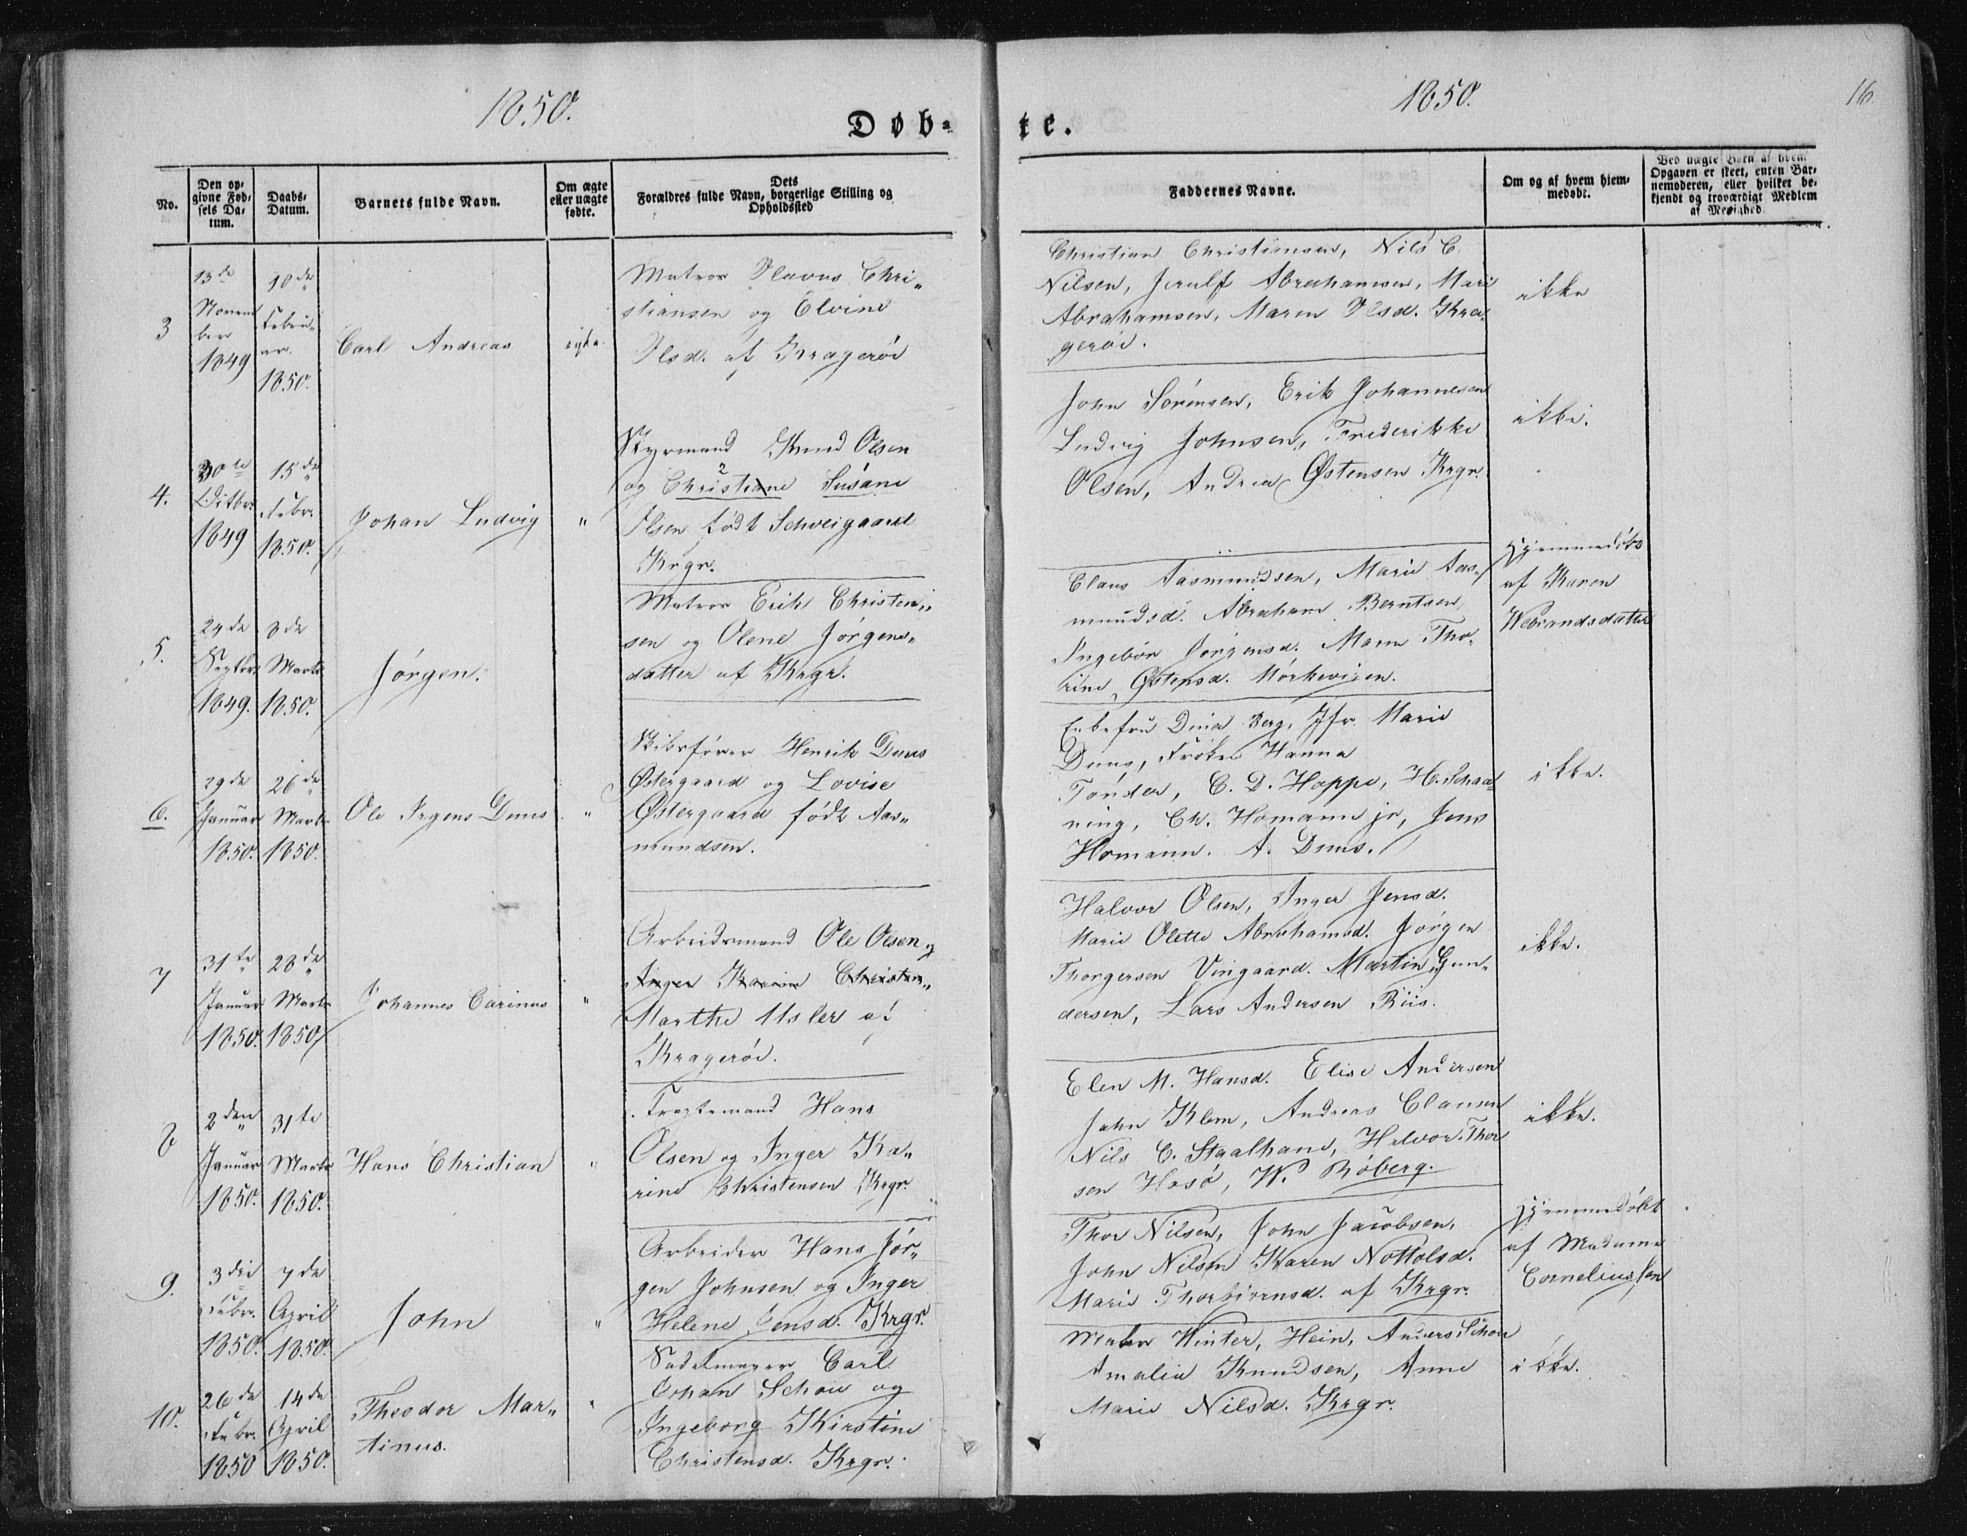 1850.
1850.
16.
Døb-
te.
No.
Den op-
givne Fød-
sels Da-
tum.
Daabs-
Datum.
Barnets fulde Navn.
Om ægte
eller uægte
fødte.
Dets
Forældres fulde Navn, borgerlige Stilling og
Opholdssted
Faddernes Navne.
Om og af hvem hjem-
medøbt.
Ved uægte Børn af hvem
Opgaven er skeet, enten Bar-
nemoderen, eller hvilket be-
kjendt og troværdigt Medlem
af Menighed.
3
13de
Novem
ber
1849
10de
Febru-
ar.
1850.
Carl Andreas
ægte
Matros Olavus Chri-
stiansen og Elvine
Olsd. af Kragerøe
Christian Christiansen, Nils C.
Nilsen, Abrahamsen, Mari
Abrahamsen, Maren Olsd. Kra-
gerøe.
ikke
4.
30te
Octbr.
1849
15de
Febr.
1850.
Johan Ludvig
"
Styrmand Knud Olsen
og Christiane Susane
Olsen født Schveigaard
Krgr.
John Sørensen, Erik Johannesen
Ludvig Johnsen, Frederikke
Olsen, Andrea Østensen Krgr.
ikke.
5.
24de
Septbr.
1849.
3de
Marts
1850.
Jørgen.
Matros Erik Christen-
sen og Olene Jørgens-
datter af Krgr.
Claus Aasmundsen, Marie Aas-
mundsd. Abraham Berntsen
Ingebor Jørgensd. Maren Tho-
rine Østensd. Mørkevigen.
Hjemmedøbt
af Karen
Webrandsdatter
6.
29de
Januar
1850.
26de
Marts
1850.
Ole Irgens Duus
"
Skibsfører Henrik Duus
Østergaard og Lovise
Østergaard født Aas-
mundsen.
Enkefru Dina Berg, Jfr. Marie
Duus, Frøken Hanna
Tønder, C. D. Hoppe, H. Schaa-
ning, Ch. Homann jr, Jens
Homann. A. Duus.
ikke.
7
31te
Januar
1850.
28de
Marts
1850
Johannes Carinus
"
Arbeidsmand Ole Olsen og
Inger Karine Christen-
Marthe Usler af
Kragerøe.
Halvor Olsen, Inger Jensd.
Marie Olette Abrahamsd. Jørgen
Thorgersen Vingaard. Martin Gun-
dersen, Lars Andersen Riis.
ikke.
8
2den
Januar
1850.
31te
Marts
1850.
Hans Christian
"
Fragtemand Hans
Olsen og Inger Ka-
rine Christensen Krgr.
Elen M. Hansd. Elise Andersen
John Klem, Andreas Clausen
Nils C. Staalhane, Halvor Thor
sen Hasø, W. Røberg.
ikke.
9.
3die
Febr.
1850.
7de
April
1850.
John
"
Arbeider Hans Jør-
gen Johnsen og Inger
Helene Jensd. Krgr.
Thor Nilsen, John Jacobsen,
John Nilsen Karen Nottolsd.
Marie Thorbjørnsd. af Krgr.
Hjemmedøbt
af Madame
Corneliussen
10.
26de
Febr.
1850
14de
April
1850.
Theodor Mar-
tinus.
"
Sadelmager Carl
Johan Schou og
Ingeborg Kirstine
Christensd. Krgr.
Maler Winter, Hein, Anders Schou
Amalia Knudsen, Anne
Marie Nilsd. Krgr.
ikke.